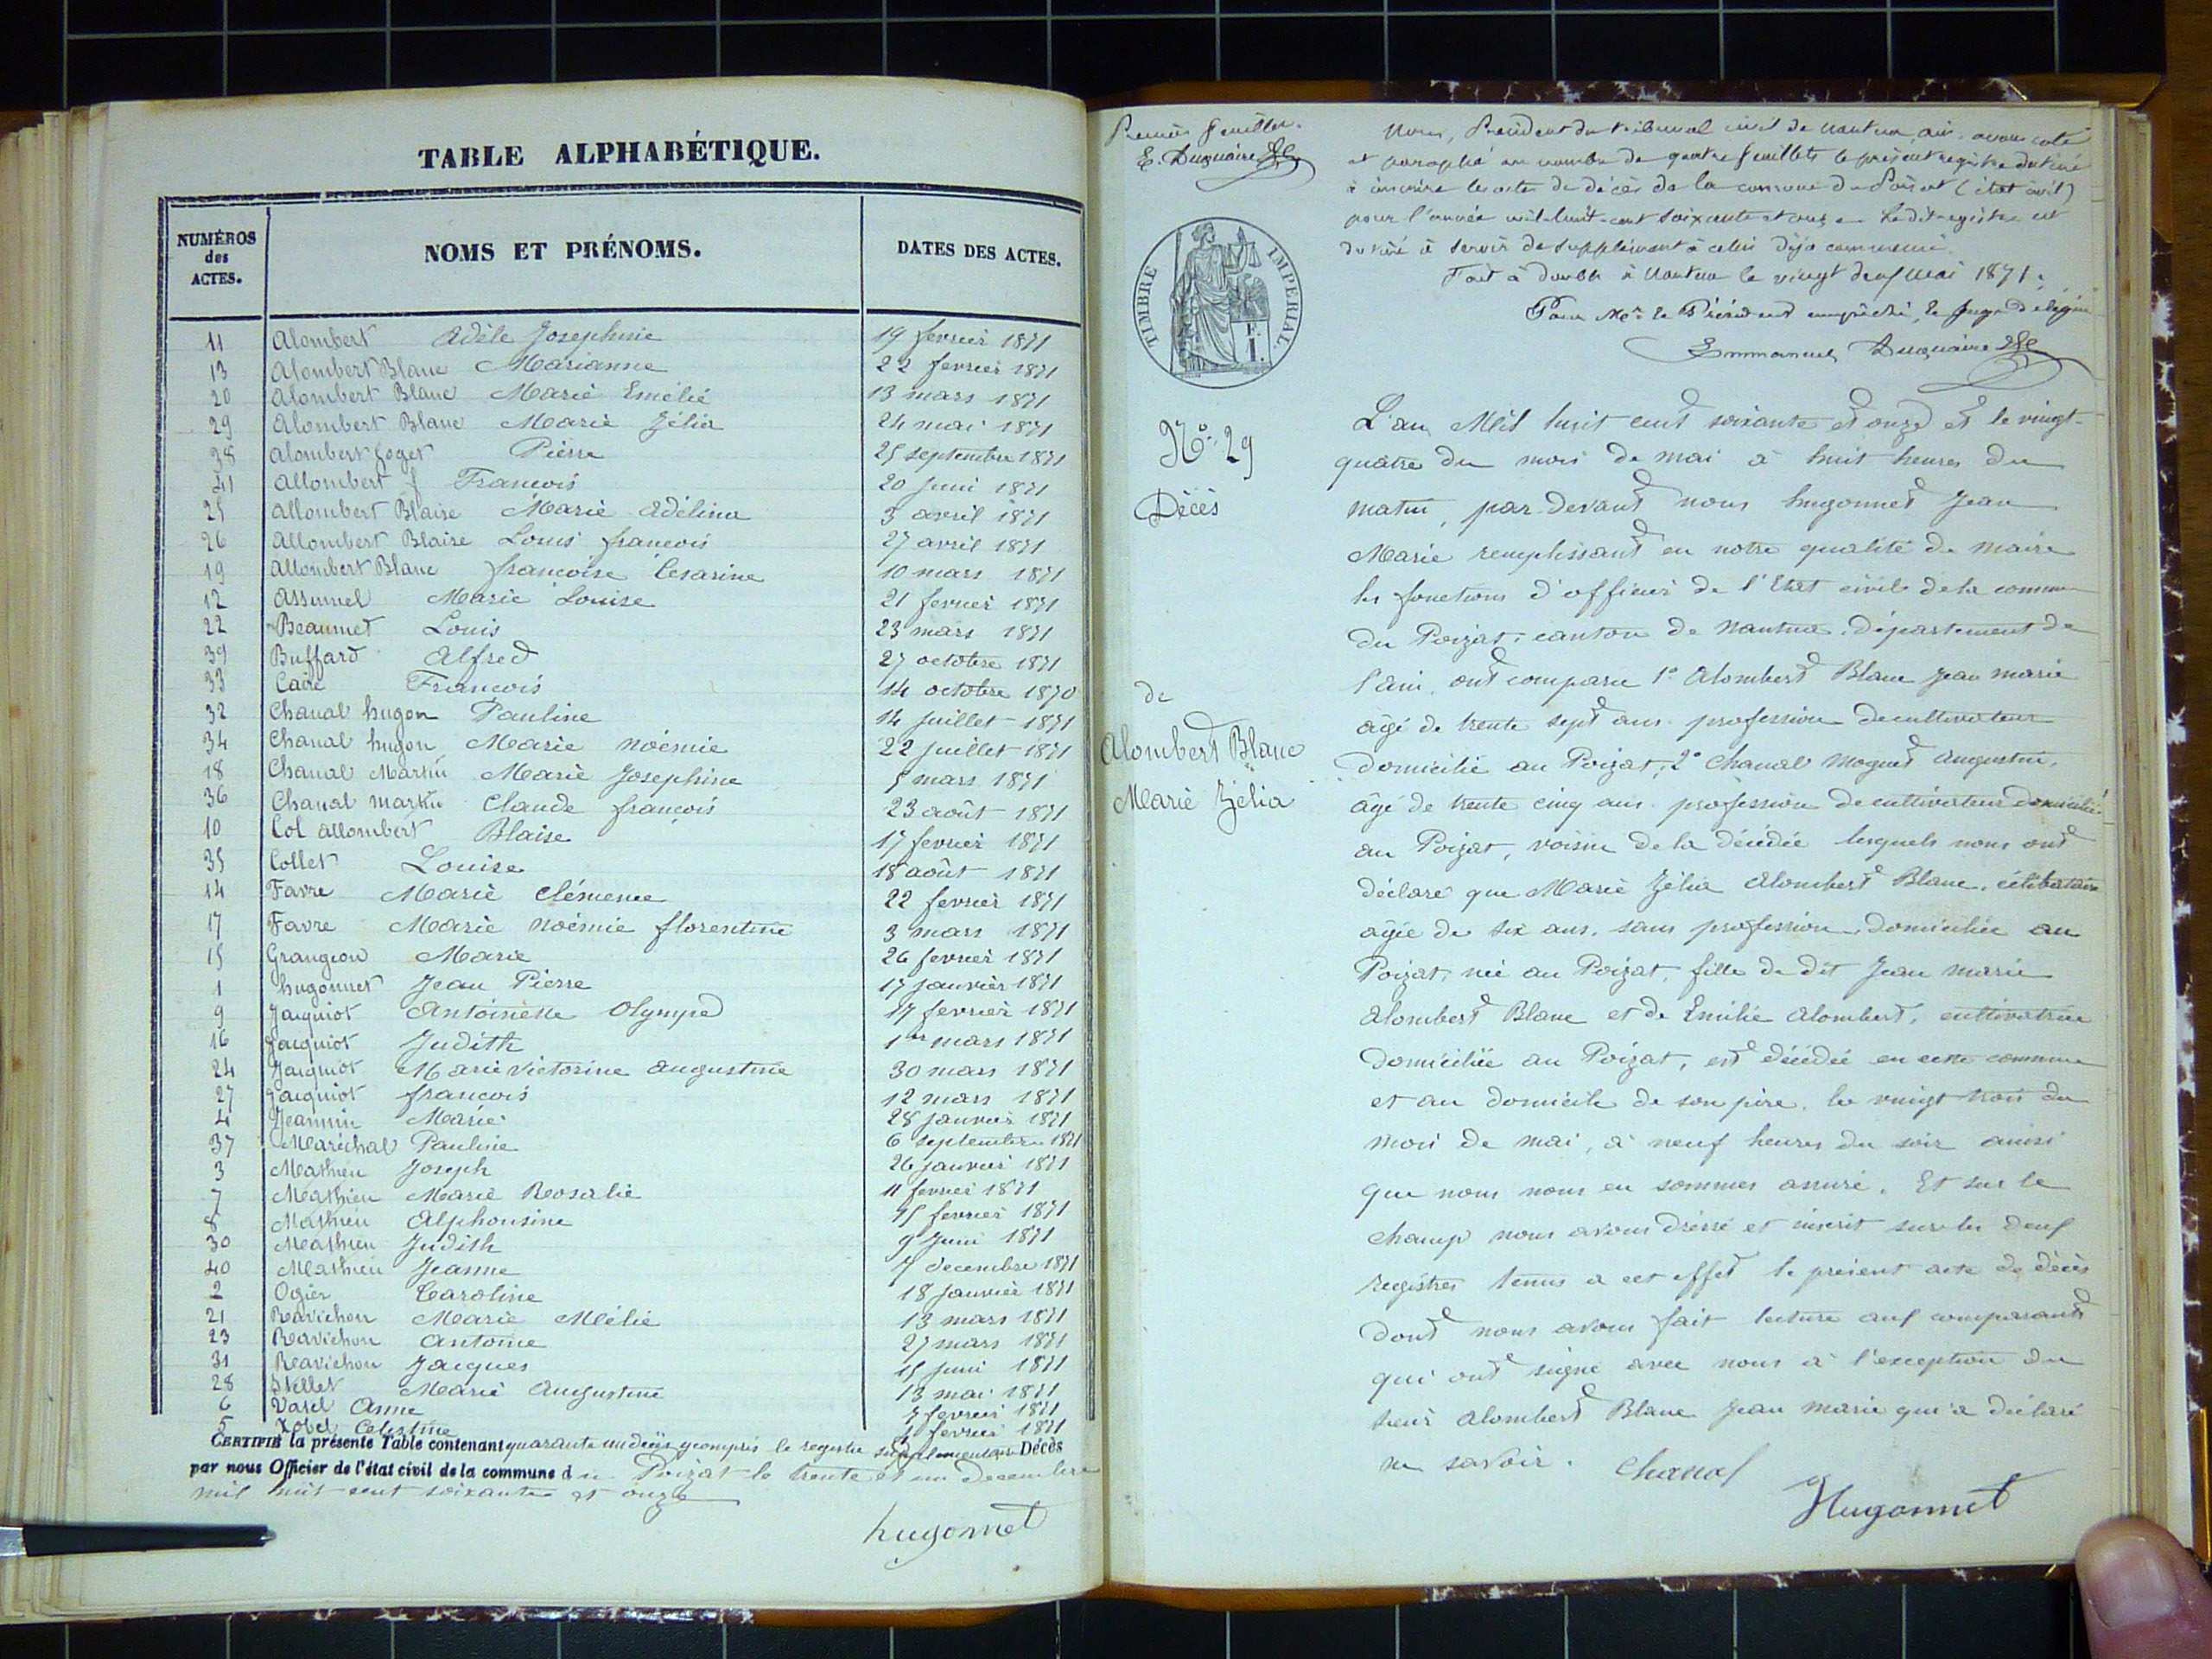 TABLE ALPHABÉTIQUE.
NUMÉROS des ACTES.
NOMS ET PRÉNOMS.
DATES DES ACTES.
11 Alombert Adèle Josephine 19 fevrier 1871
13 Alombert Blanc Marianne 22 fevrier 1871
20 Alombert Blanc Marie Emélie 13 mars 1871
29 Alombert Blanc Marie Zélia 24 mai 1871
38 Alombert Goget Pierre 25 septembre 1871
41 Allombert f Francois 20 Juin 1871
25 Allombert Blaise Marie Adélina 3 avril 1871
26 Allombert Blaise Louis francois 27 avril 1871
19 Allombert Blanc francoise Césarine 10 mars 1871
12 Assumel Marie Louise 21 fevrier 1871
22 Beaumet Louis 23 mars 1871
39 Buffard Alfred 27 octobre 1871
33 Caire Francois 14 octobre 1870
32 Chanal hugon Pauline 14 Juillet 1871
34 Chanal hugon Marie noémie 22 juillet 1871
18 Chanal Martin Marie Josephine 5 mars 1871
36 Chanal martin Claude francois 23 août 1871
10 Col allombert Blaise 17 fevrier 1871
35 Collet Louise 18 août 1871
14 Favre Marie Clémence 22 fevrier 1871
17 Favre Marie Noémie florentine 3 mars 1871
15 Grangeon Marie 26 fevrier 1871
1 hugonnet Jean Pierre 17 janvier 1871
9 Jacquiot Antoinette Olympe 17 fevrier 1871
16 Jacquiot Judith 1er mars 1871
24 Jacquiot Marie Victorine augustine 30 mars 1871
27 Jacquiot francois 12 mars 1871
4 Jeannin Marie 28 janvier 1871
37 Maréchal Pauline 6 septembre 1871
3 Mathieu Joseph 26 janvier 1871
7 Mathieu Marie Rosalie 11 fevrier 1871
8 Mathieu Alphonsine 15 fevrier 1871
30 Mathieu Judith 9 Juin 1871
40 Mathieu Jeanne 7 decembre 1871
2 Ogier Caroline 18 Janvier 1871
21 Ravichon Marie Mélie 13 mars 1871
23 Ravichon Antoine 27 mars 1871
31 Ravichon Jacques 15 juin 1871
28 Stellet Marie Augustine 13 mai 1871
6 Vasel Anne 7 fevrier 1871
5 Celestine fevrier 1871
CERTIFIÉ la présente Table contenant quarante un décès y compris le registre suplementaire Décès
par nous Officier de l'état civil de la commune du Poizat le trente et un decembre
mil huit cent soixante et onze
hugonnet
Premier feuillet.
E. Duquaire
Nous, Président du tribunal civil de Nantua ain. avons coté
et paraphé au nombre de quatre feuillets le présent registre destiné
à inscrire les actes de décès de la commune du Poizat (état civil)
pour l'année mil-huit-cent soixante et onze. Le dit registre est
destiné à servir de supplément à celui déjà commencé.
Fait à double à Nantua le vingt deux mai 1871.
Pour Mr le Président empêché, le Juge délégué
Emmanuel Duquaire
TIMBRE IMPERIAL.
F. I.
No. 29
Décès
de
Alombert Blanc
Marie Zélia
L'an Mil huit cent soixante et onze et le vingt-
quatre du mois de mai à huit heures du
matin, par-devant nous hugonnet Jean
Marie remplissant en notre qualité de maire
les fonctions d'officier de l'Etat civil de la commune
du Poizat, canton de Nantua, département de
l'ain, ont comparu 1° Alombert Blanc Jean marie
âgé de trente sept ans profession de cultivateur
domicilié au Poizat, 2° Chanal Moguet Augustin,
âgé de trente cinq ans profession de cultivateur domicilié
au Poizat, voisin de la décédée lesquels nous ont
déclaré que Marie Zélia Alombert Blanc, célibataire
agée de six ans, sans profession, domiciliée au
Poizat, née au Poizat, fille de dit Jean marie
Alombert Blanc et de Emilie Alombert, cultivatrice
domiciliée au Poizat, est décédée en cette commune
et au domicile de son père, le vingt trois du
mois de mai, à neuf heures du soir ainsi
que nous nous en sommes assuré. Et sur le
champ nous avons dressé et inscrit sur les deux
registres tenus a cet effet le présent acte de décès
dont nous avons fait lecture aux comparants
qui ont signé avec nous à l'exception du
sieur Alombert Blanc Jean marie qui a déclaré
ne savoir.
Chanal
Hugonnet